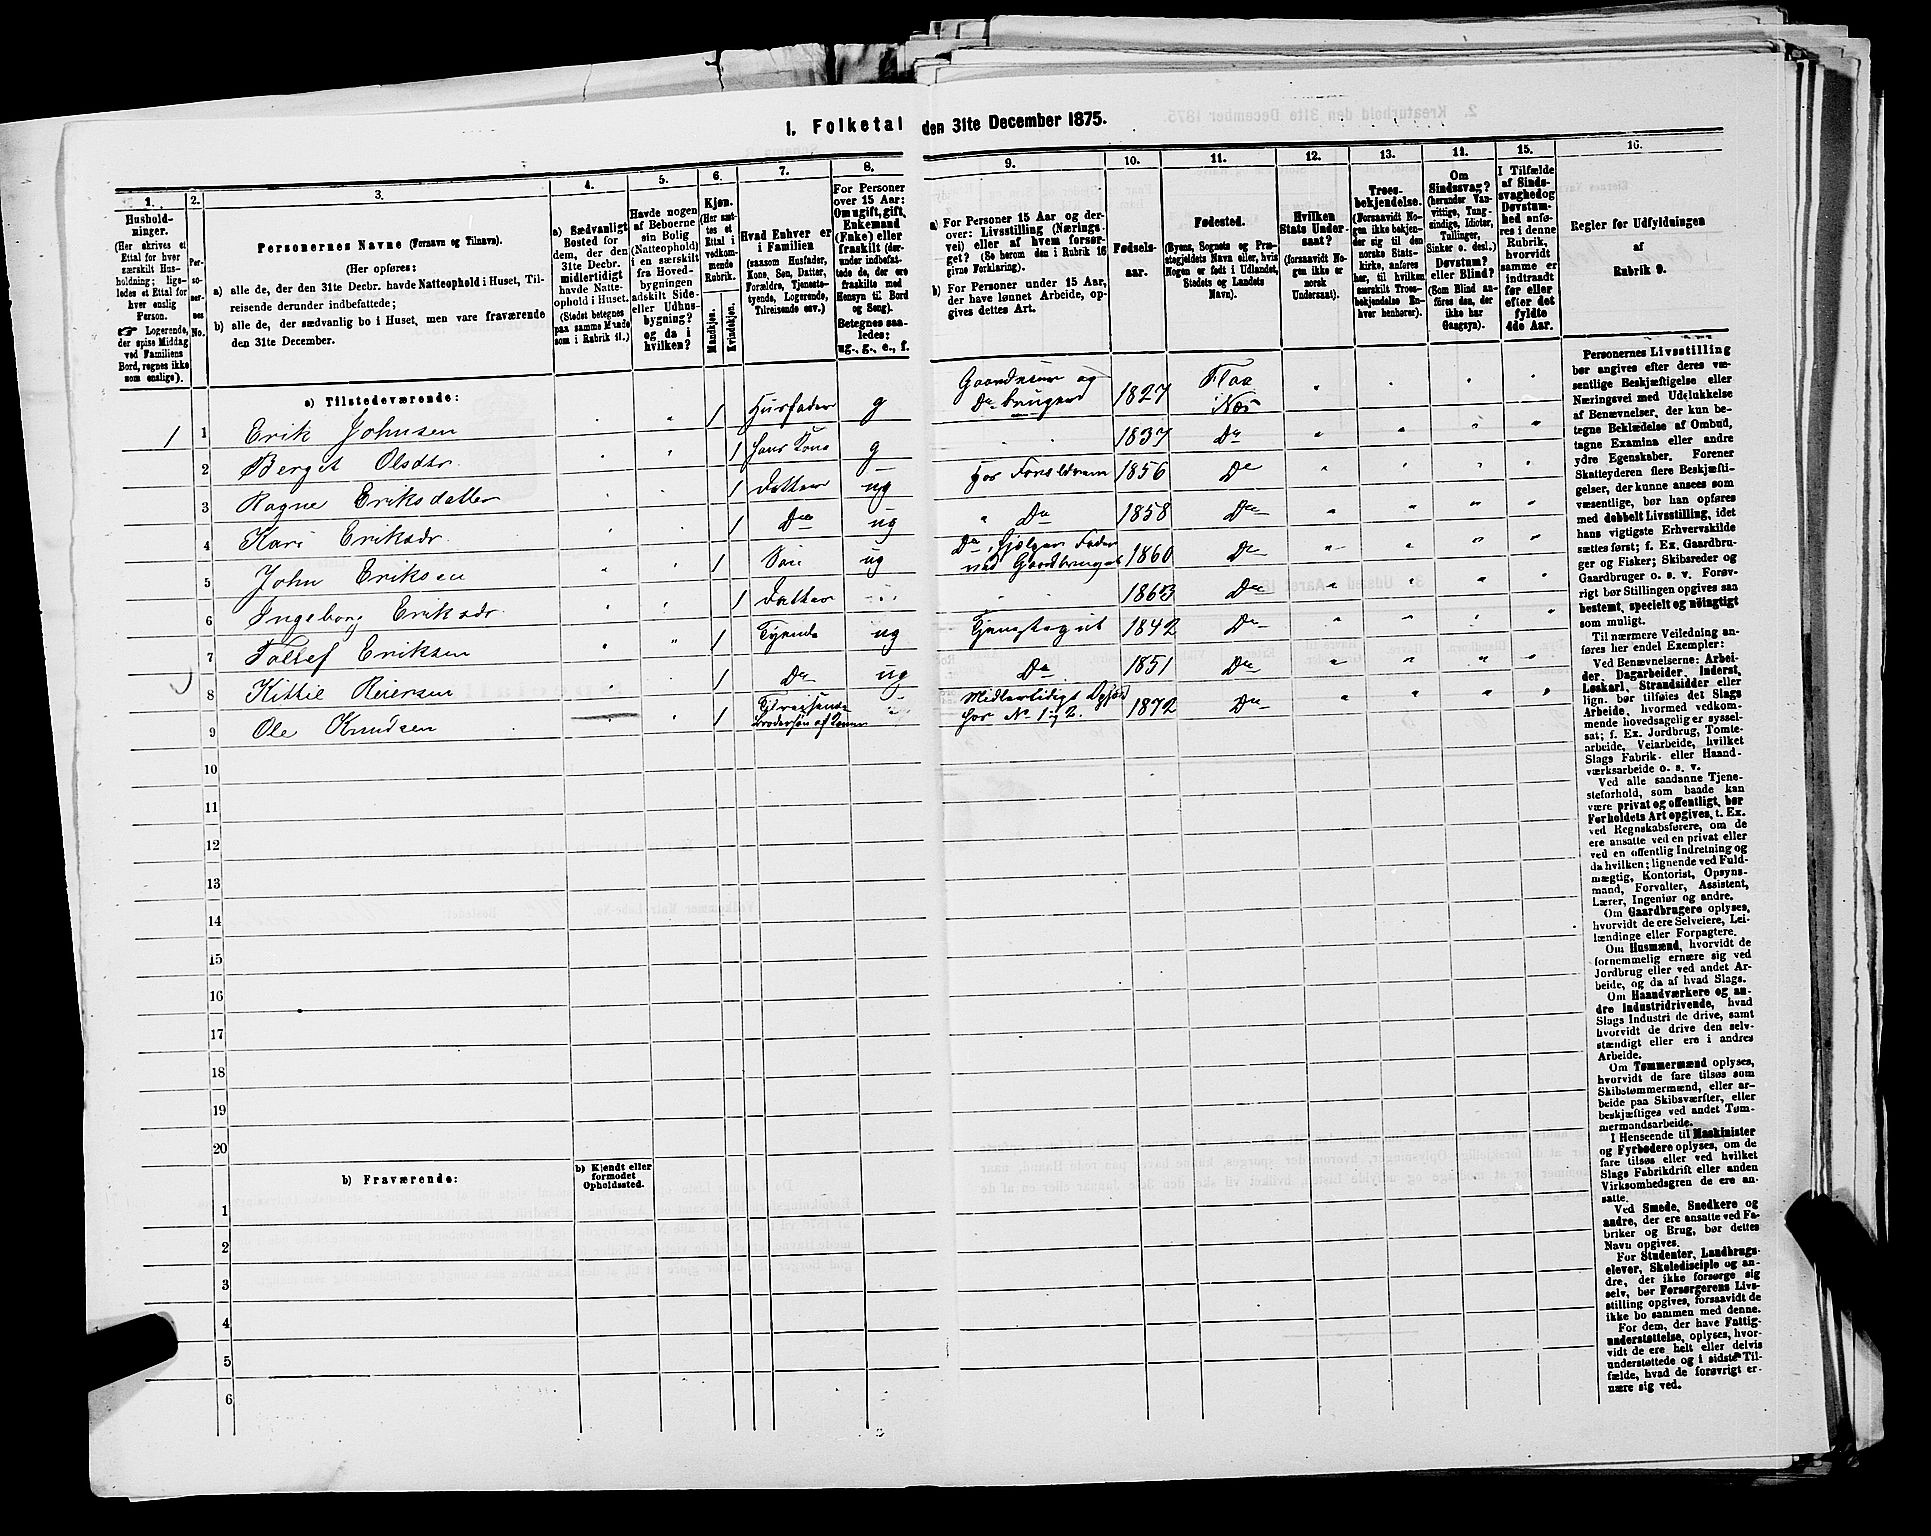 1. Folketal den 31te December 1875.
1.
Hushold-
ninger.
(Her skrives et
Ettal for hver
særskilt Hus-
holdning; lige-
ledes et Ettal for
hver enslig
Person.
☞ Logerende,
der spise Middag
ved Familiens
Bord, regnes ikke
som enslige).
2.
Per-
so-
ner-
nes
No.
3.
Personernes Navne (Fornavn og Tilnavn).
(Her opføres:
a) alle de, der den 31te Decbr. havde Natteophold i Huset, Til-
reisende derunder indbefattede;
b) alle de, der sædvanlig bo i Huset, men vare fraværende
den 31te December.
4.
a) Sædvanligt
Bosted for
dem, der den
31te Decbr.
midlertidigt
havde Natte-
ophold i Huset.
(Stedet betegnes
paa samme Maade
som i Rubrik 11.)
5.
Havde nogen
af Beboerne
sin Bolig
(Natteophold)
i en særskilt
fra Hoved-
bygningen
adskilt Side-
eller Udhus-
bygning?
og da i
hvilken?
6.
Kjøn.
(Her sæt-
tes et
Ettal i
vedkom-
mende
Rubrik.)
Mandkjøn.
Kvindekjøn.
7.
Hvad Enhver er
i Familien
(saasom Husfader,
Kone, Søn, Datter,
Forældre, Tjeneste-
tyende, Logerende,
Tilreisende osv.)
8.
For Personer
over 15 Aar:
Om ugift, gift,
Enkemand
(Enke) eller
fraskilt (der-
under indbefat-
tede de, der ere
fraskilte med
Hensyn til Bord
og Seng).
Betegnes saa-
ledes:
ug., g., e., f.
9.
a) For Personer 15 Aar og der-
over: Livsstilling (Nærings-
vei) eller af hvem forsør-
get? (Se herom den i Rubrik 16
givne Forklaring).
b) For Personer under 15 Aar,
der have lønnet Arbeide, op-
gives dettes Art.
10.
Fødsels-
aar.
11.
Fødested.
(Byens, Sognets og Præ-
stegjeldets Navn eller, hvis
Nogen er født i Udlandet,
Stedets og Landets
Navn).
12.
Hvilken
Stats Under-
saat?
(forsaavidt No-
gen ikke er
norsk
Undersaat).
13.
Troes-
bekjendelse.
(Forsaavidt No-
gen ikke bekjen-
der sig til den
norske Stats-
kirke, anføres
her, til hvilken
særskilt Troes-
bekjendelse En-
hver henhører).
14.
Om
Sindssvag?
(herunder Van-
vittige, Tung-
sindige, Idioter,
Tullinger,
Sinker o. desl.)
Døvstum?
eller Blind?
(Som Blind an-
føres den, der
ikke har
Gangsyn).
15.
I Tilfælde
af Sinds-
svaghed og
Døvstum-
hed anfø-
res i denne
Rubrik,
hvorvidt
samme er
indtraadt
før eller
efter det
fyldte
4de Aar.
16.
Regler for Udfyldningen
af
Rubrik 9.
a) Tilstedeværende:
1 1 Erik Johnsen 1 Husfader g Gaardeier og Do bruger 1827 Flaa i Næs
2 Bergit Olsdtr. 1 Hans Kone g 1837 Do
3 Ragne Eriksdatter 1 Datter ug hos Forældrene 1856 Do
4 Kari Eriksdr 1 Do ug Do 1858 Do
5 John Eriksen 1 Søn ug Do, hjelper Fader ved Gaardbruget 1860 Do
6 Ingeborg Eriksdr 1 Datter 1863 Do
7 Tollef Eriksen 1 Tyende ug Tjenstegut 1842 Do
8 Kittil Reiersen 1 Do ug Do 1851 Do
9 Ole Knudsen 1 Tilreisende Brodersøn af Konen Midlertidigt hos No 1 & 2. 1872 Do
10
11
12
13
14
15
16
17
18
19
20
b) Fraværende:
b) Kjendt eller
formodet
Opholdssted.
1
2
3
4
5
6
Personernes Livsstilling
bør angives efter deres væ-
sentlige Beskjæftigelse eller
Næringsvei med Udelukkelse
af Benævnelser, der kun be-
tegne Beklædelse af Ombud,
tagne Examina eller andre
ydre Egenskaber. Forener
Skatteyderen flere Beskjæfti-
gelser, der kunne ansees som
væsentlige, bør han opføres
med dobbelt Livsstilling, idet
hans vigtigste Erhvervskilde
sættes først; f. Ex. Gaardbru-
ger og Fisker; Skibsreder og
Gaardbruger o. s. v. Forøv-
rigt bør Stillingen opgives saa
bestemt, specielt og nøiagtigt
som muligt.
Til nærmere Veiledning an-
føres her endel Exempler:
Ved Benævnelserne: Arbei-
der, Dagarbeider, Inderst,
Løskarl, Strandsidder eller
lign. bør tilføies det Slags
Arbeide, hvormed vedkom-
mende hovedsagelig er syssel-
sat; f. Ex. Jordbrug, Tomte-
arbeide, Veiarbeide, hvilket
Slags Fabrik- eller Haand-
værksarbeide o. s. v.
Ved alle saadanne Tjene-
steforhold, som baade kan
være privat og offentligt, bør
Forholdets Art opgives, t. Ex.
ved Regnskabsførere, om de
ere ansatte ved en privat eller
ved en offentlig Indretning og
da hvilken; lignende ved Fuld-
mægtig, Kontorist, Opsyns-
mand, Forvalter, Assistent,
Lærer, Ingeniør og andre.
Om Gaardbrugere oplyses,
hvorvidt de ere Selveiere, Lei-
lændinge eller Forpagtere.
Om Husmænd, hvorvidt de
fornemmelig ernære sig ved
Jordbrug eller ved andet Ar-
beide, og da af hvad Slags.
Om Haandværkere og an-
dre Industridrivende, hvad
Slags Industri de drive, samt
hvorvidt de drive den selv-
stændigt eller ere i andres
Arbeide.
Om Tømmermænd oplyses,
hvorvidt de fare tilsøs som
Skibstømmermænd, eller ar-
beide paa Skibsværfter, eller
beskjæftiges ved andet Tøm-
mermandsarbeide.
I Henseende til Maskinister
og Fyrbødere oplyses, om de
fare tilsøs eller ved hvilket
Slags Fabrikdrift eller anden
Virksomhedsgren de ere an-
satte.
Ved Smede, Snedkere og
andre, der ere ansatte ved Fa-
briker og Brug, bør dettes
Navn opgives.
For Studenter, Landbrugs-
elever, Skoledisciple og an-
dre, der ikke forsørge sig
selv, bør Forsørgerens Livs-
stilling opgives, forsaavidt de
ikke bo sammen med denne.
For dem, der have Fattig-
understøttelse, oplyses, hvor-
vidt de ere helt eller delvis
understøttede og i sidste Til-
fælde, hvad de forøvrigt er-
nære sig ved.